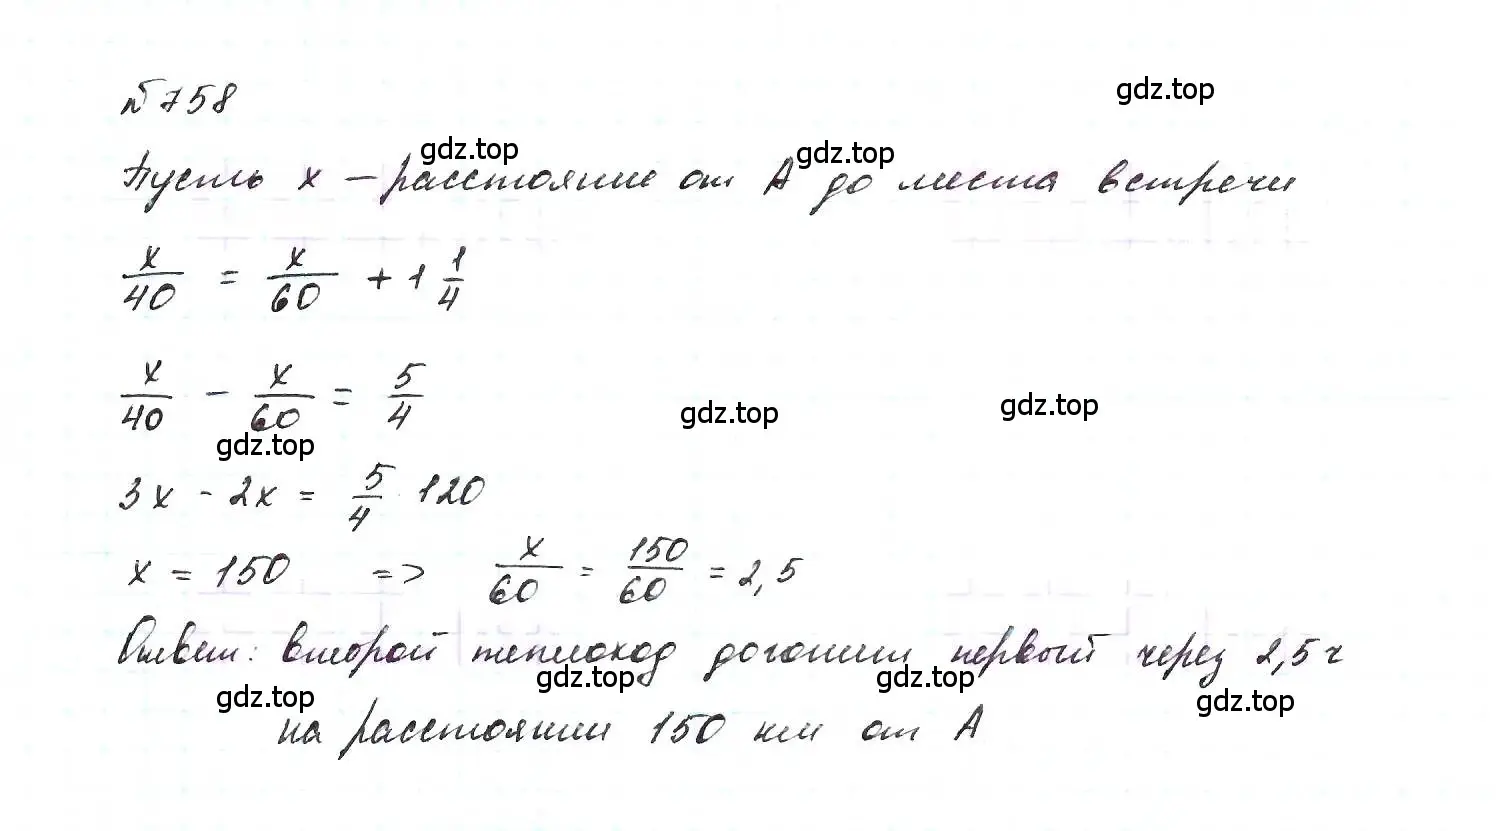 № 758
gdz.top
gdz.top
gdz.top
Пусть x – расстояние от А до места встречи
x/40 = x/60 + 1 1/4
x/40 - x/60 = 5/4
gdz.top
gdz.top
gdz.top
3x - 2x = 5/4 · 120
x = 150 => x/60 = 150/60 = 2,5
Ответ: второй теплоход догонит первый через 2,5 ч
gdz.top
gdz.top
gdz.top
gdz.top
на расстоянии 150 км от А